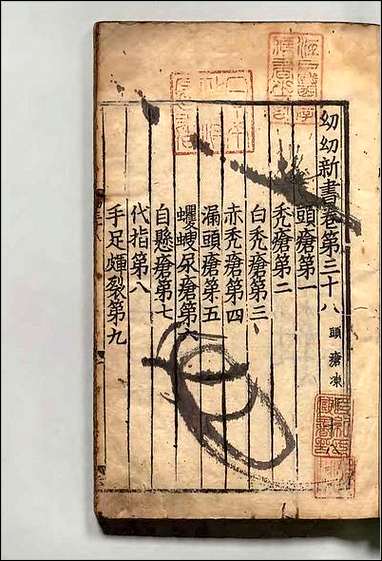 幼幼新書卷第三十八 頭瘡凍
頭瘡第一
禿瘡第二
白禿瘡第三
赤禿瘡第四
漏頭瘡第五
蠼螋尿瘡第六
自懸瘡第七
代指第八
手足皸裂第九